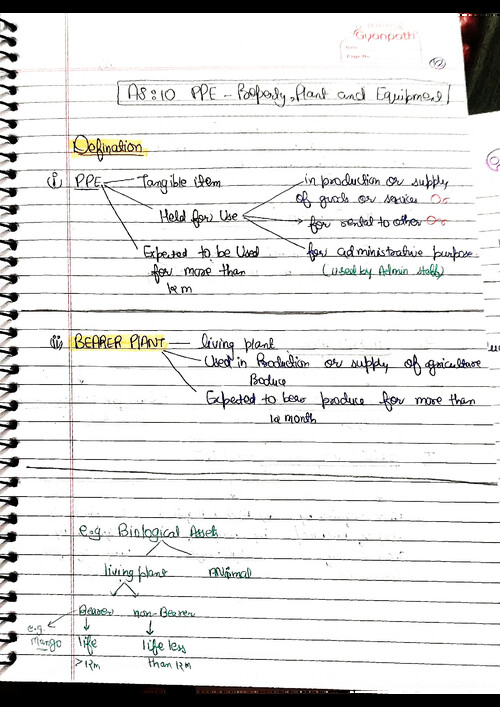 Gyanpath
AS:10 PPE - Property, Plant and Equipment
Defination
(i) PPE
Tangible item
Held for Use
in production or supply
of goods or service Or
for rental to other Or
for administrative purpose
(used by Admin staff)
Expected to be Used
for more than
12 m
(ii) BEARER PLANT
living plant
Used in Production or supply of agriculture
Produce
Expected to bear produce for more than
12 month
e.g. Biological Assets
living plant Animal
Bearer non-Bearer
e.g.
Mango
life life less
>12m than 12m